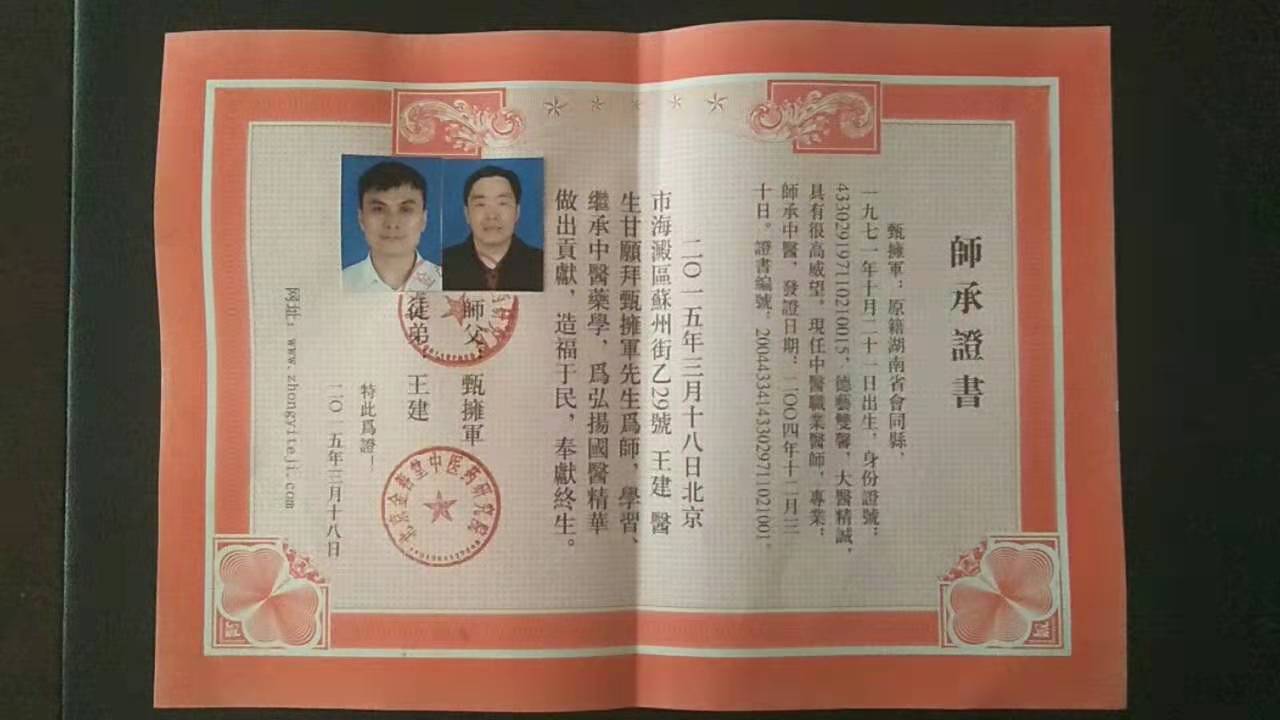 師承證書
甄擁軍：原籍湖南省會同縣，
一九七一年十月二十一日出生，身份證號：
433029197110210015，德藝雙馨，大醫精誠，
具有很高威望。現任中醫職業醫師，專業：
師承中醫，發證日期：二〇〇四年十二月三
十日。證書編號：200443341433029711021001。
二〇一五年三月十八日北京
市海澱區蘇州街乙29號 王建 醫
生甘願拜甄擁軍先生爲師，學習、
繼承中醫藥學，爲弘揚國醫精華
做出貢獻，造福于民，奉獻終生。
師父：甄擁軍
徒弟：王建
特此爲證！
二〇一五年三月十八日
网址：www.zhongyiteji.com
北京金善堂中医药研究院